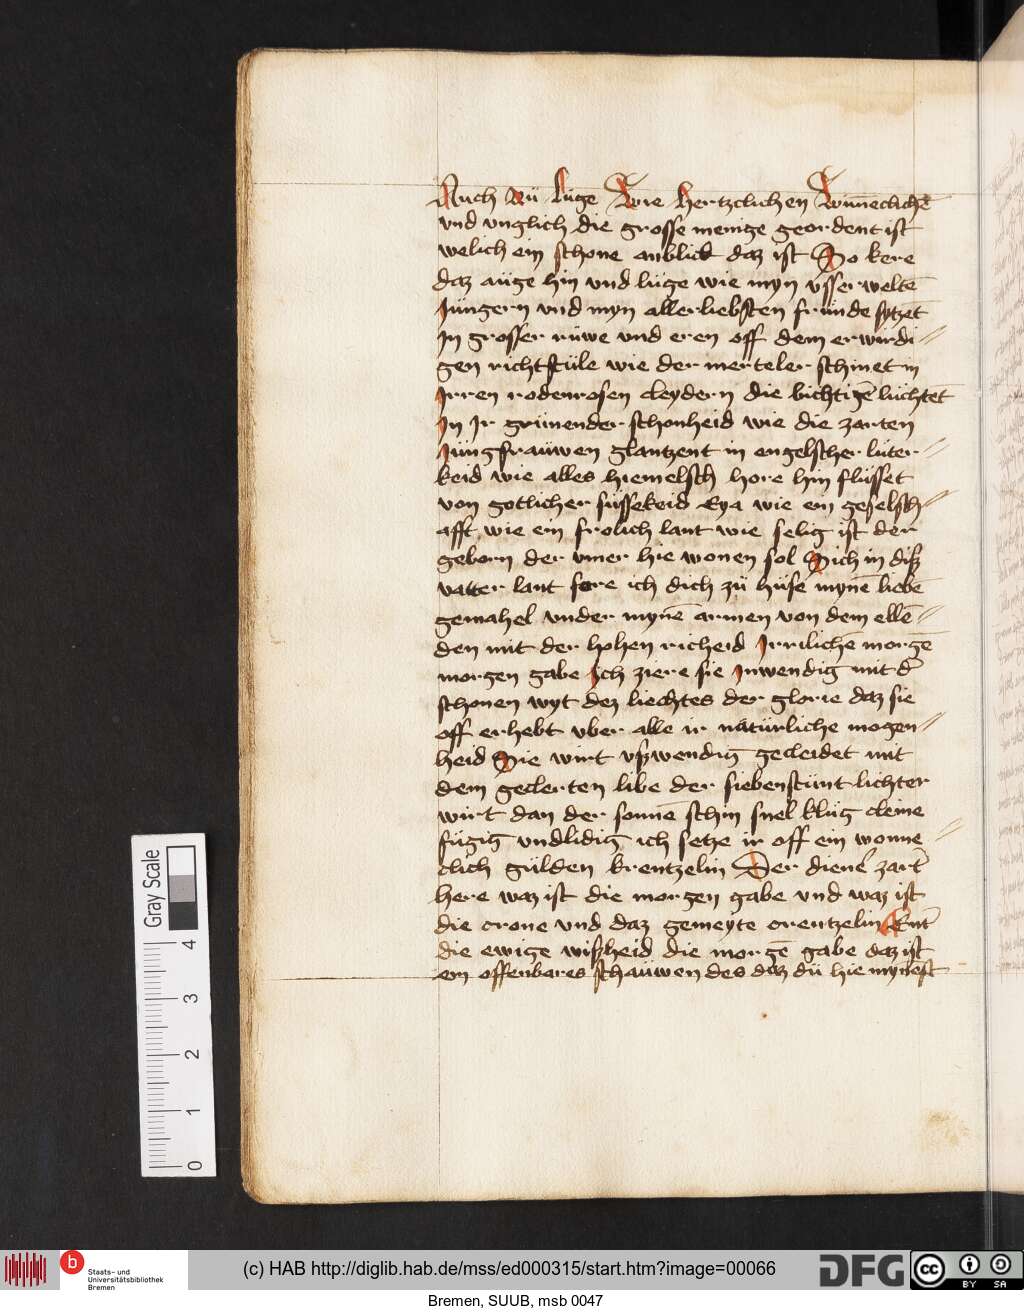 Auch Nü lüge Wie hertzclichen Wünneclichē
vnd vnglich die grosse menige geordent ist
welich ein schone anblick daz ist So kere
daz auge hin vnd lüge wie myn vsserweltē
Jüngern vnd myn allerliebsten fründe sytzēt
In grosser rüwe vnd eren off dem erwirdi-
gen richtstüle wie der merteler schinet in
Irren rodenrosen cleydern die bichtigē lüchtēt
In Ir grünender schonheid wie die zarten
Jüngfrauwen glantzent in engelscher lüter-
keid wie alles hiemelsch hore hin flüsset
von gotlicher süssekeid Eya wie ein geselsch-
afft wie ein frolich lant wie selig ist der
geborn der vmer hie wonen sol Sich in diß
vatter lant fore ich dich zü hüse mynē liebē
gemahel vnder mynē armen von dem ellē-
den mit der hohen richeid Irrilichē morgē
morgen gabe Ich ziere sie Inwendig mit d̄
schonen wyt dez liechtes der glorie daz sie
off erhebt vber alle ir natürliche mogen-
heid Sie wirt vßwendig gecleidet mit
dem geclerten libe der siebenstünt lichter
wirt dan der sonnē schin snel klüg cleine
fügig vndlidig ich setze ir off ein wonne-
clich gülden krentzelin Der dienē zart̄
here waz ist die morgen gabe vnd waz ist
die crone vnd daz gemeyte crentzelin Ent̄
die ewige wißheid die morgē gabe daz ist
ein offenbares schauwen des daz dü hie mynest
Gray Scale
4
3
2
1
0
b
Staats- und
Universitätsbibliothek
Bremen
(c) HAB http://diglib.hab.de/mss/ed000315/start.htm?image=00066
DFG
cc BY SA
Bremen, SUUB, msb 0047